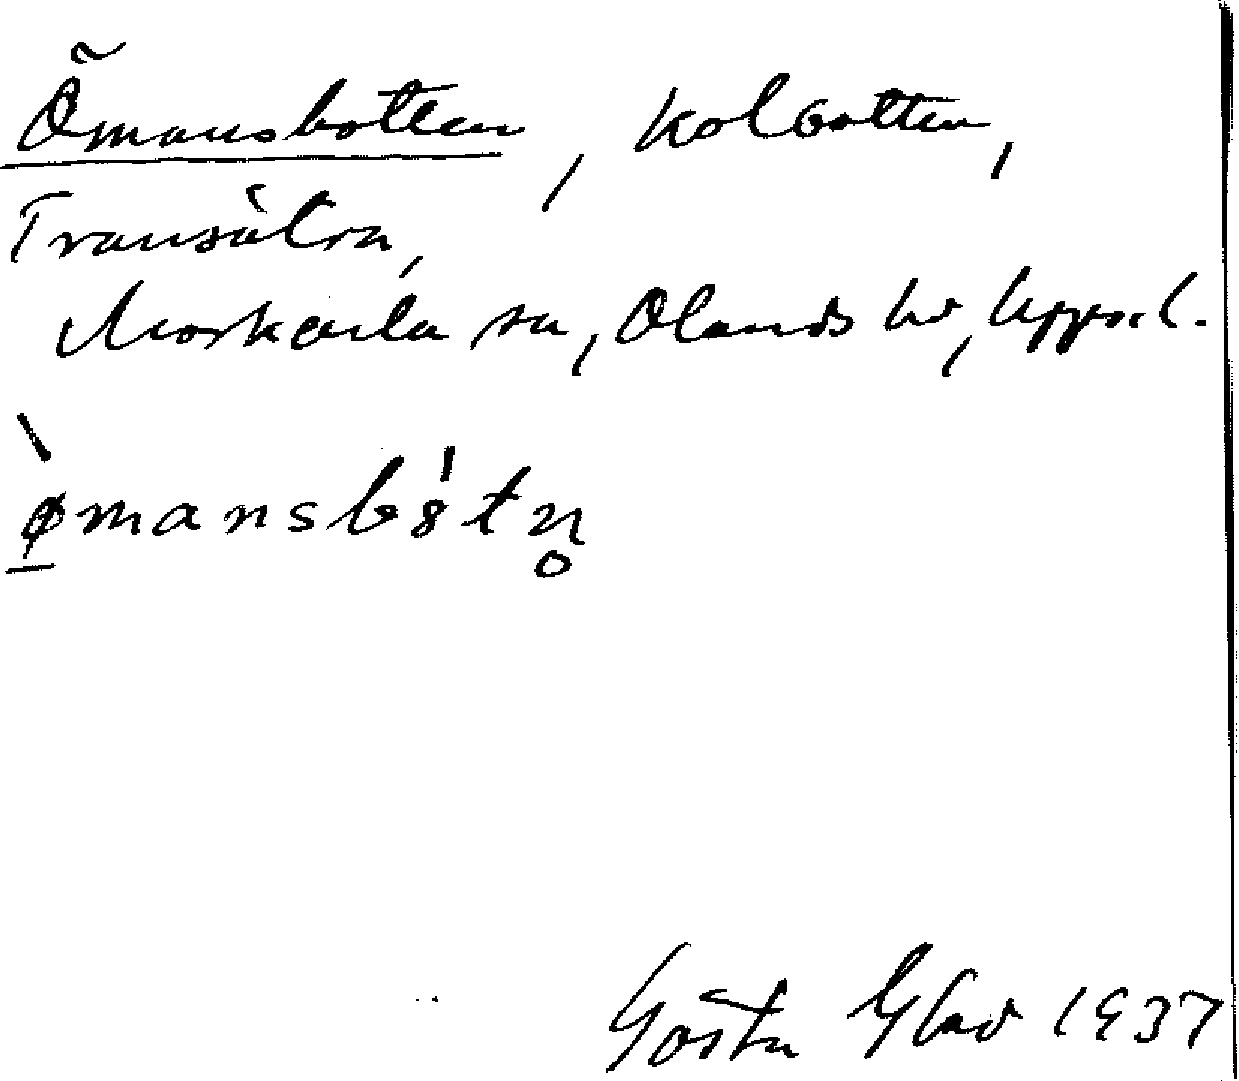 Ömansbotten, kolbotten,
Transätra,
Morkarla sn, Olands hd, Upps. l.
ømansbótn̥
Gösta Glad 1937